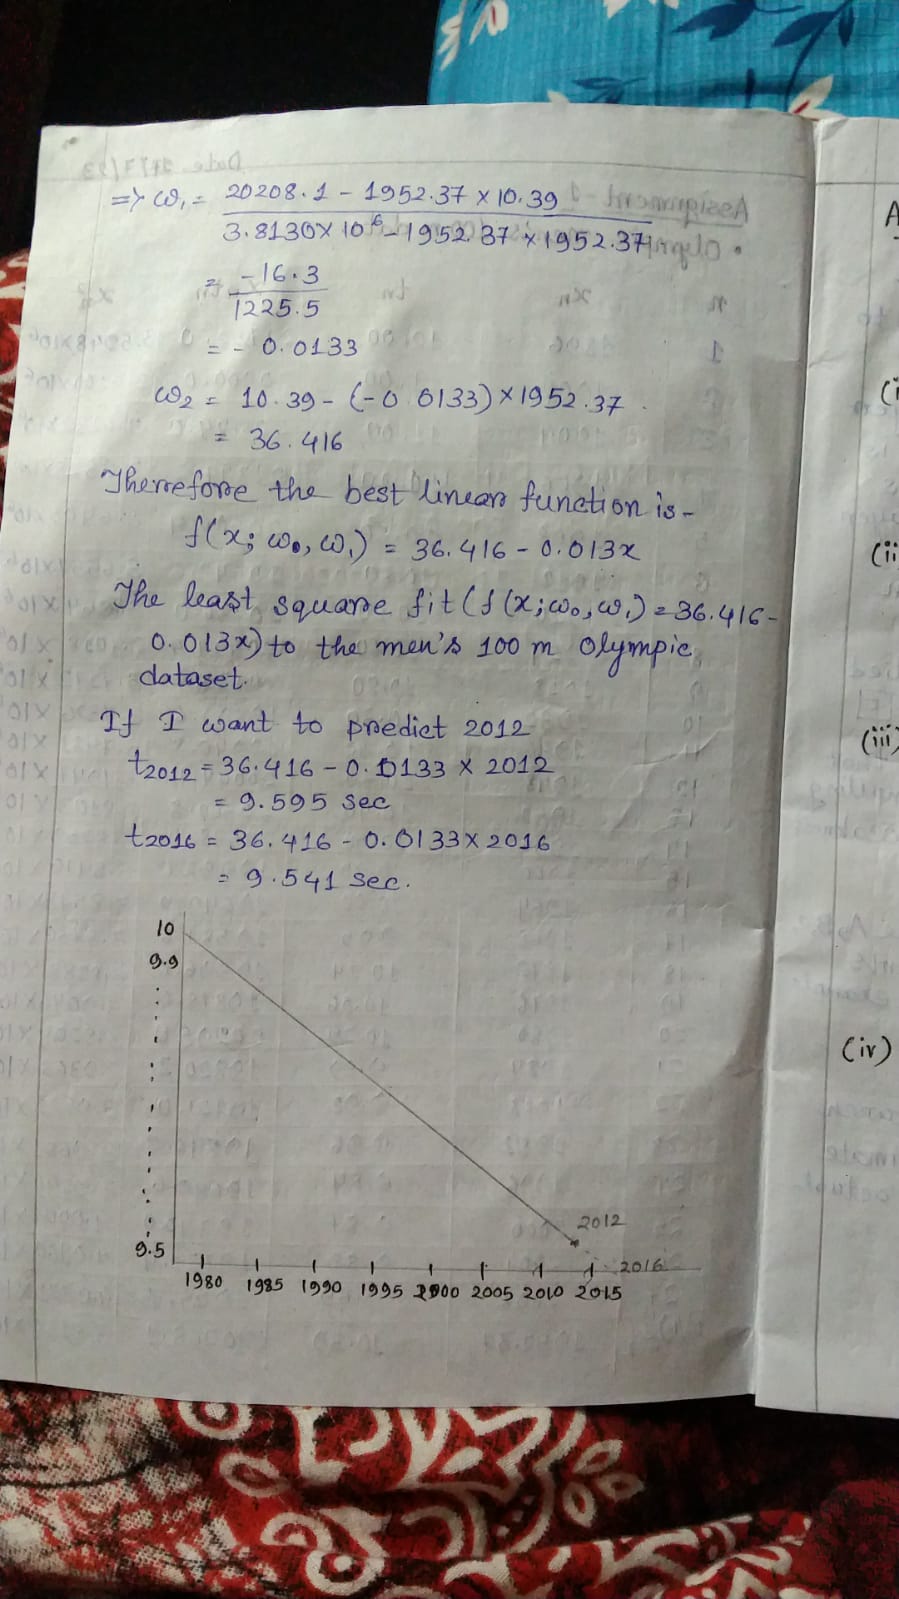 => ω₁ = 20208.1 - 1952.37 × 10.39
3.8130 × 10⁶ - 1952.37 × 1952.37
= -16.3
1225.5
= - 0.0133
ω₂ = 10.39 - (-0.0133) × 1952.37
= 36.416
Therefore the best linear function is -
f(x; ω₀, ω₁) = 36.416 - 0.013x
The least square fit (f(x; ω₀, ω₁) = 36.416 -
0.013x) to the men's 100 m Olympic
dataset.
If I want to predict 2012
t2012 = 36.416 - 0.0133 × 2012
= 9.595 sec
t2016 = 36.416 - 0.0133 × 2016
= 9.541 sec.
10
9.9
9.5
2012
2016
1980 1985 1990 1995 2000 2005 2010 2015
A
(ii
(iii)
(iv)